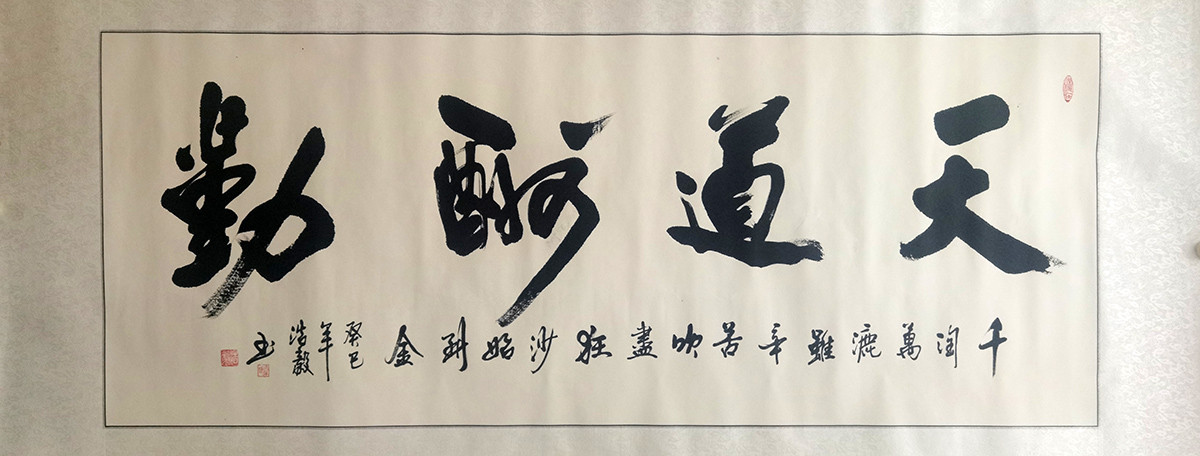 天道酬勤
千淘萬漉雖辛苦吹盡狂沙始到金
癸巳
年
浩毅
书